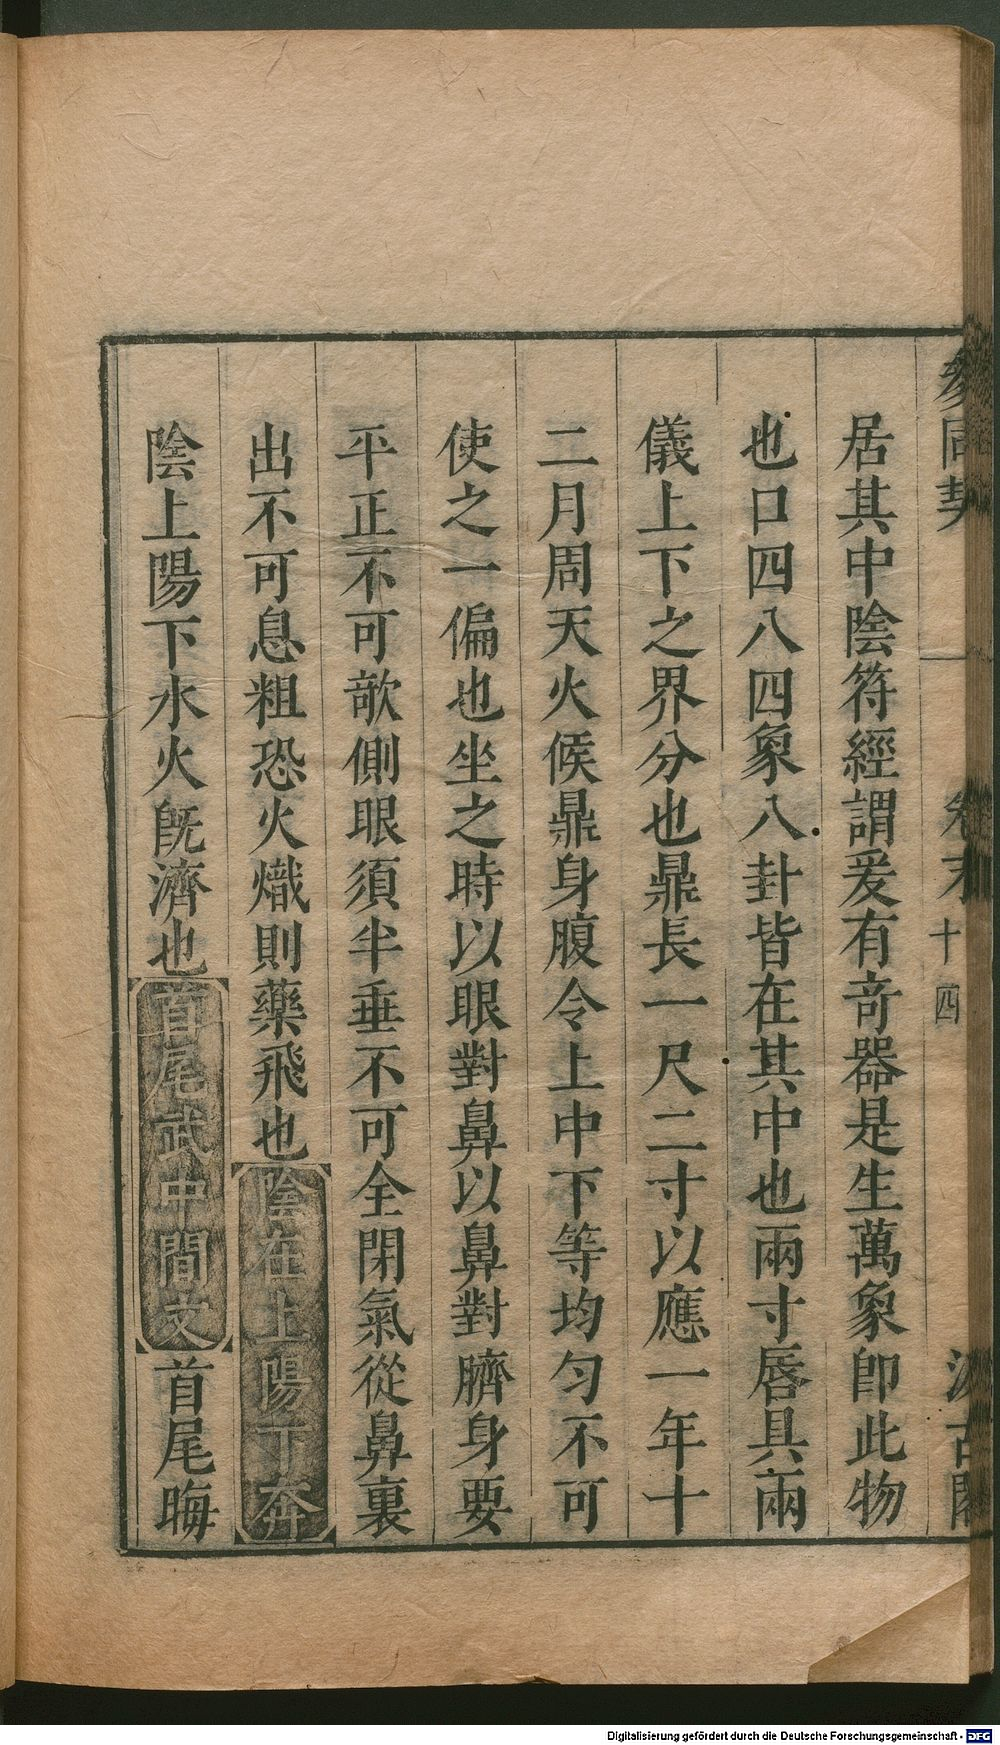 參同契 卷末 十四 汲古閣
居其中陰符經謂爰有竒器是生萬象卽此物
也口四八四象八卦皆在其中也兩寸唇具兩
儀上下之界分也鼎長一尺二寸以應一年十
二月周天火候鼎身腹令上中下等均匀不可
使之一偏也坐之時以眼對鼻以鼻對臍身要
平正不可敧側眼須半垂不可全閉氣從鼻裏
出不可息粗恐火熾則藥飛也陰在上陽下奔
陰上陽下水火旣濟也首尾武中間文首尾晦
Digitalisierung gefördert durch die Deutsche Forschungsgemeinschaft - DFG